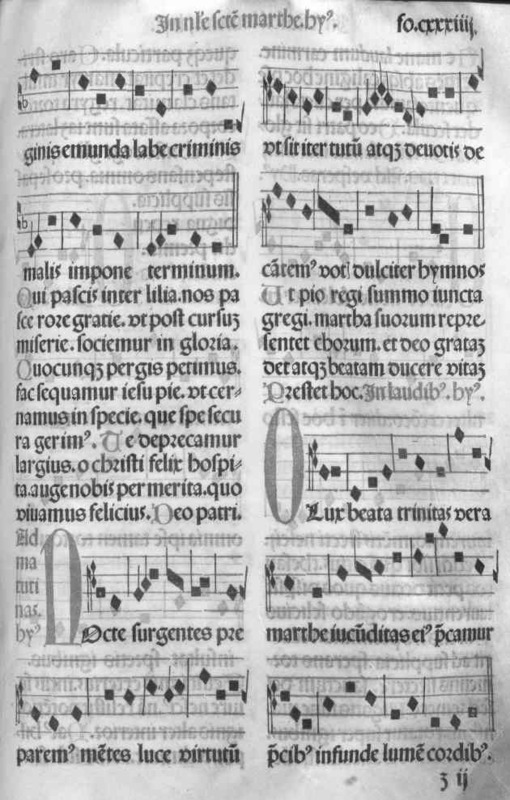 In nr̄e scte̅ marthe. hyꝰ.
fo. cxxxiiij.
ginis emunda labe criminis
malis impone terminum.
Qui pascis inter lilia. nos pa
sce rore gratie. vt post cursuʒ
miserie. sociemur in gloria.
Quocunqʒ pergis petimus.
fac sequamur iesu pie. vt cer-
namus in specie. que spe secu
ra gerimꝰ. Te deprecamur
largius. o christi felix hospi-
ta. auge nobis per merita. quo
viuamus felicius. Deo patri.
Ad
ma
tuti
nas.
hyꝰ
NOcte surgentes pre
paremꝰ me̅tes luce virtutu̅
vt sit iter tutu̅ atqʒ deuotis de
ca̅temꝰ vot! dulciter hymnos
Ut pio regi summo iuncta
gregi. martha suorum repre-
sentet chorum. et deo grataʒ
det atqʒ beatam ducere vitaʒ
Prestet hoc. In laudibꝰ. hyꝰ.
O Lux beata trinitas vera
marthe iucu̅ditas eiꝰ p̄camur
p̄cibꝰ infunde lume̅ cordibꝰ.
ʒ ij